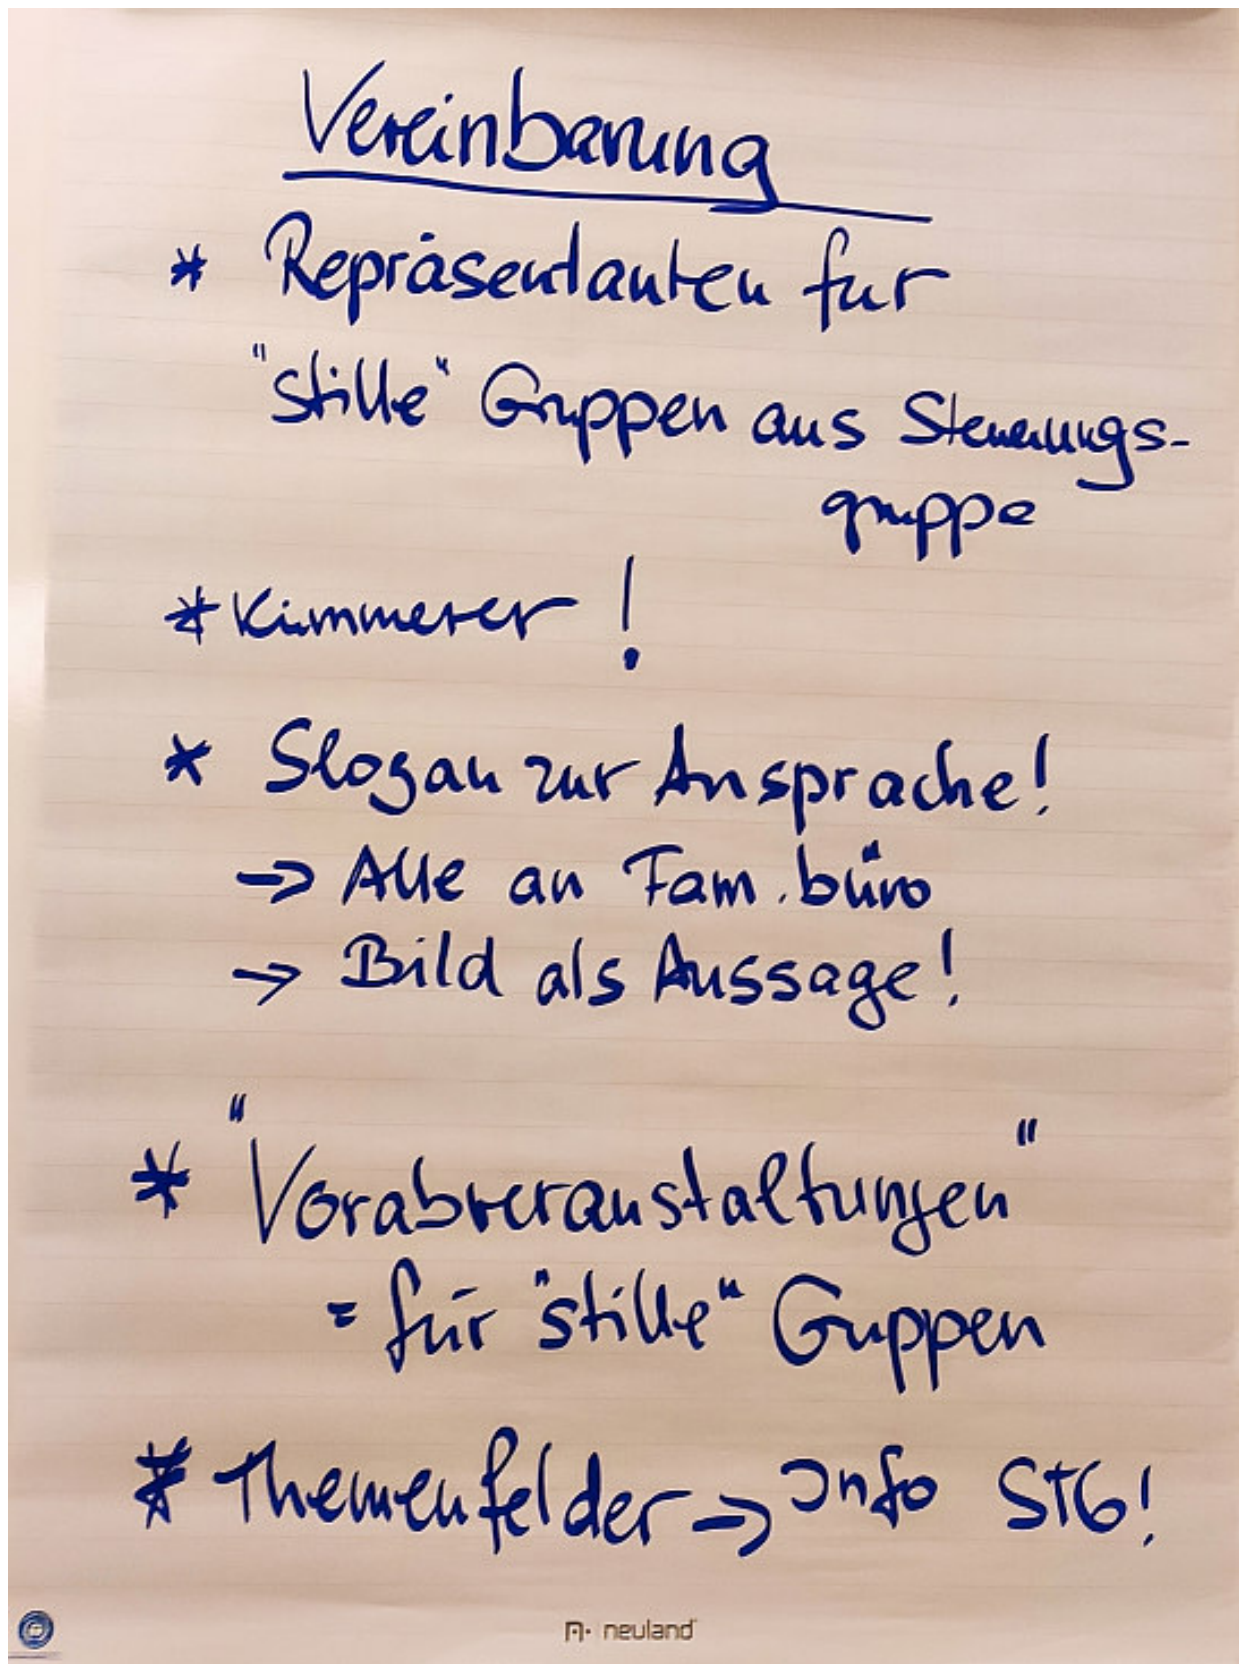 Vereinbarung
* Repräsentanten für
"stille" Gruppen aus Steuerungs-
gruppe
* Kümmerer !
* Slogan zur Ansprache!
→ Alle an Fam.büro
→ Bild als Aussage!
* "Vorabveranstaltungen"
= für "stille" Gruppen
* Themenfelder → Info STG!
neuland